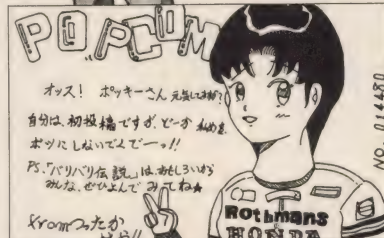 POPCOM
オッス! ポッキーさん 元気してますか?
自分は、初投稿ですが、どーか 私めを
ボツに しないでくでーっ!!
PS.「バリバリ伝説」は、おもしろいから
みんな、ぜひよんで みてね★
from つったか
Rothmans
HONDA
NO. 014480